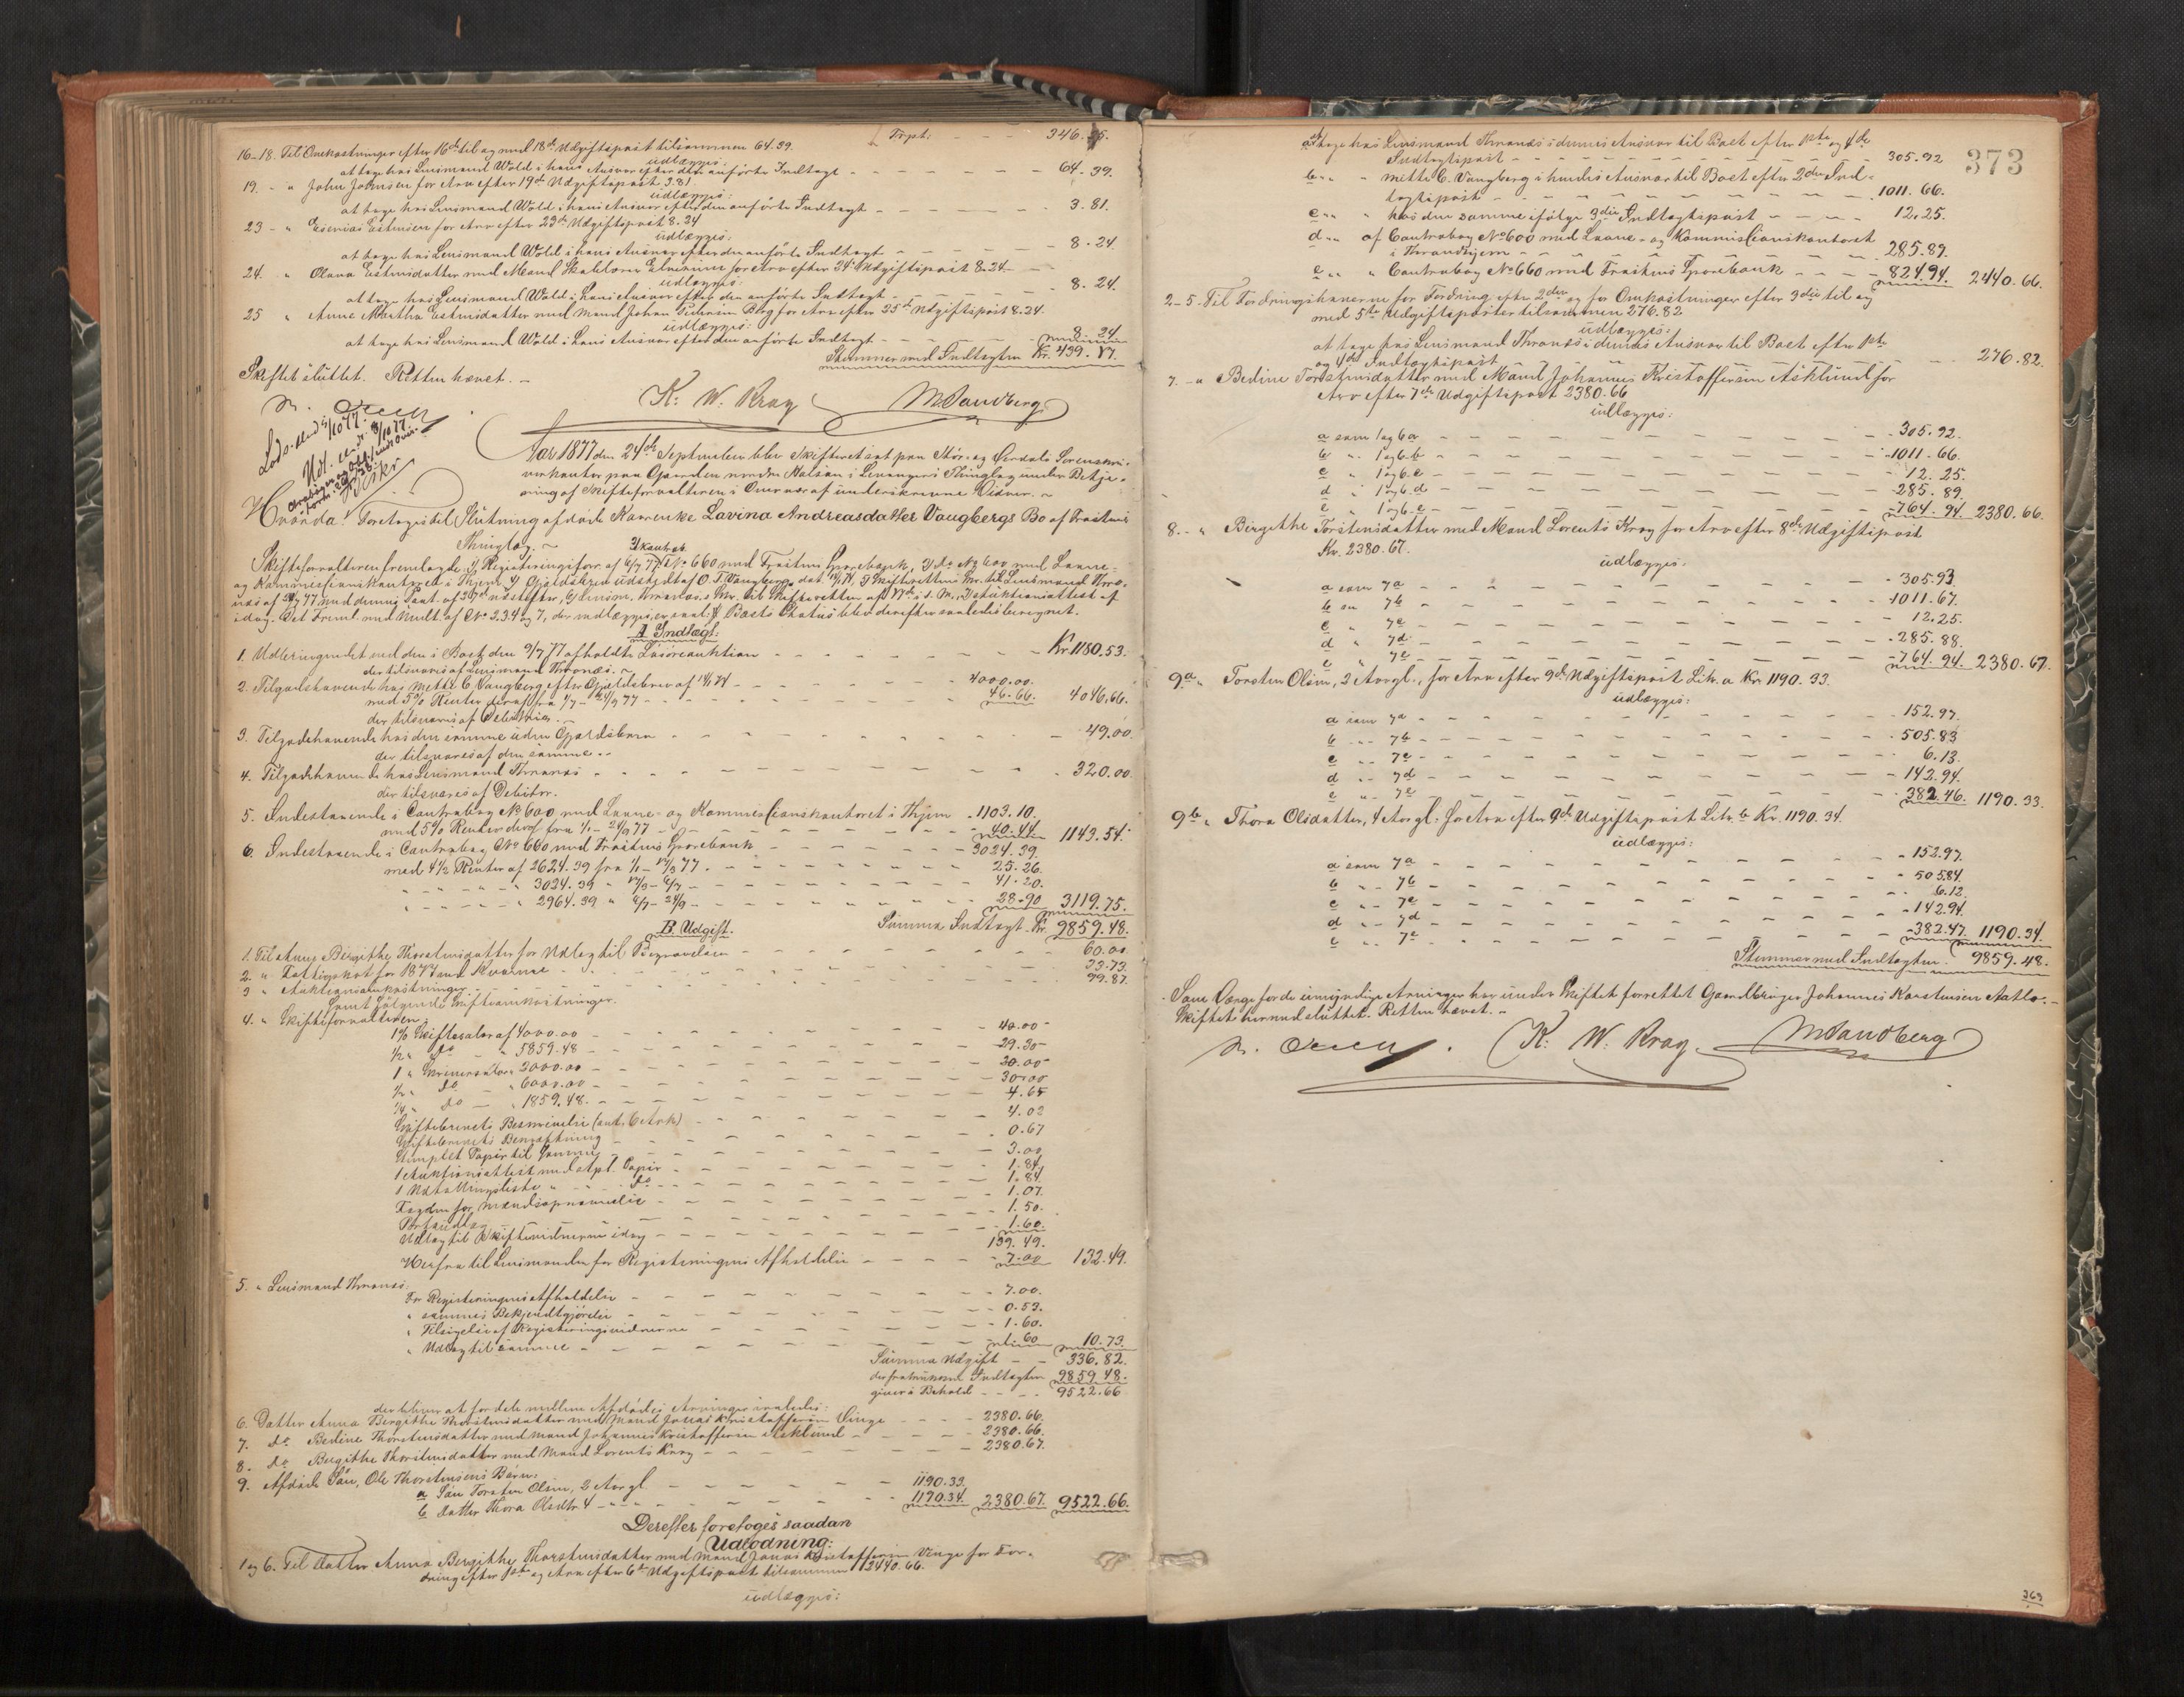 Trpt: - - - 346.75.
16-18. Til Omkostninger efter 16de til og med 18de Udgiftspost tilsammen 64.39.
udlægges:
at tage hos Lensmand Wold i hans Ansvar efter den anførte Indtægt - - - 64.39.
19. - " John Johnsen for Arv efter 19de Udgiftspost 3.81.
udlægges:
at tage hos Lensmand Wold i hans Ansvar efter den anførte Indtægt - - - 3.81.
23 - " Esenias Estensen for Arv efter 23de Udgiftspost 8.24
udlægges:
at tage hos Lensmand Wold i hans Ansvar efter den anførte Indtægt - - - 8.24
24. " Olava Estensdatter med Mand for Arv efter 24de Udgiftspost 8.24
udlægges:
at tage hos Lensmand Wold i hans Ansvar efter den anførte Indtægt - - - 8.24.
25 " Anne Martha Estensdatter med Mand Johan Berg for Arv efter 25de Udgiftspost 8.24.
udlægges:
at tage hos Lensmand Wold i hans Ansvar efter den anførte Indtægt - - - 8.24
Stemmer med Indtægten Kr. 439.87.
Skiftet sluttet. Retten hævet. -
K. W. Krag MSandberg
Aar 1877 den 24de September blev Skifteret sat paa Stør- og Værdals Sorenskri-
verkontor paa Gaarden nordre Halsan i Levangers Thinglag under Betje-
ning af Skifteforvalteren i Overvær af underskrevne Vidner. -
Hvorda: Foretoges til Slutning afdøde Kaarenke Lavina Andreasdatter Vaugbergs Bo af Frostens
Thinglag. -
Skifteforvalteren fremlagde: 1) Registreringsforr. af 6/7 77, 2) Kontrab. No 660 med Frostens Sparebank, 3) Do No 600 med Laane-
og Kommissionskontoret i Thjem 4) Gjeldsbrev udstedt af O. T. Vaugberg
idag. Det Freml. med Undt. af No 2.3.4 og 7, der vedlægges Boets Status blev derefter saaledes beregnet.
A Indtægt:
1. Udbringendet ved den i Boet den 9/7 77 afholdte Løsøreauktion - - - Kr. 1180.53.
der tilsvares af Lensmand Thronæs. -
2. Tilgodehavende hos Mette C. Vaugberg efter Gjældsbrev af - - - 4000.00.
med 5% Renter deraf fra 1/7 - 24/9 77 - - - 46.66. 4046.66.
der tilsvares af Debitrix. -
3. Tilgodehavende hos den samme uden Gjældsbrev - - - 49.00.
der tilsvares af den samme. -
4. Tilgodehavende hos Lensmand Thronæs - - - 320.00
der tilsvares af Debitor.
5. Indestaaende i Contrabog No 600 med Laane- og Kommissionskontoret i Thjem - 1103.10.
med 5% Renter deraf fra 1/1 - 24/9 77 - - - 40.44 1143.54.
6. Indestaaende i Contrabog No 660 med Frostens Sparebank - - - 3024.39.
med 4½ Renter af 2624.39 fra 1/1 - 17/3 77. - - - 25.26.
" - " - " 3024.39 " 17/3 - 6/7 - - - 41.20.
" - " - " 2964.39 " 6/7 - 24/9 - - - 28.90 3119.75.
Summa Indtægt. Kr. 9859.48.
B. Udgift.
1. Til Anne Birgithe Thorstensdatter for Udlæg til Begravelsen - - - 60.00
2. " Fattigskat for 1877 - - - 33.73.
3 " Auktionsomkostninger - - - 99.87.
Samt følgende Skifteomkostninger.
4. " Skifteforvalteren:
1% Skiftesalær af 4000.00 - - - 40.00
½ " do - " 5859.48 - - - 29.30
1 " 2000.00 - - - 20.00
½ " do " 6000.00 - - - 30.00
¼ " do - " 1859.48. - - - 4.65
Skiftebrevets Beskrivelse (ant. 6 Ark) - - - 4.02
Skiftebrevets Bekræftning - - - 0.67
Stemplet Papir til samme - - - 3.00
1 Auktionsattest med stpl. Papir - - - 1.84.
1 " - do - - - 1.84.
- - - 1.07.
- - - 1.50.
Udlæg til Skiftevidnerne idag - - - 1.60.
139.49.
Herfra til Lensmanden for Registreringens Afholdelse - - - 7.00 132.49.
5. " Lensmand Thronæs:
For Registreringens Afholdelse - - - 7.00.
" sammes Bekjendtgjørelse - - - 0.53.
" Tilsigelse af Registreringsvidnerne - - - 1.60.
" Udlæg til samme - - - 1.60 10.73.
Summa Udgift - - 336.82.
der fratrukken Indtægten 9859.48.
giver i Behold - - - 9522.66.
der bliver at fordele mellem Afdødes Arvinger saaledes:
6. Datter Anna Bergithe Thorstensdatter med Mand Jonas Kristoffersen Vinge - - - 2380.66.
7. do Bedine Thorstensdatter med Mand Johannes Kristoffersen Asklund - - - 2380.66.
8. do Birgithe Thorstensdatter med Mand Lorents Krag - - - 2380.67.
9. Afdøde Søn, Ole Thorstensens Børn:
a Søn Torsten Olsen, 2 Aar gl. - - - 1190.33.
b Datter Thora Olsdtr. 4 - " - - - 1190.34. 2380.67. 9522.66.
Derefter foretoges saadan
Udlodning:
1 og 6. Til Datter Anna Bergithe Thorstensdatter med Mand Jonas Kristoffersen Vinge for For-
dring efter 1ste og Arv efter 6te Udgiftspost tilsammen 2440.66.
udlægges:
373
a at tage hos Lensmand Thronæs i dennes Ansvar til Boet efter 1ste og 4de
Indtægtspost - - - 305.92
b " " Mette C. Vaugberg i hendes Ansvar til Boet efter 2den Ind-
tægtspost - - - 1011.66.
c " " hos den samme ifølge 3die Indtægtspost - - - 12.25.
d " " af Contrabog No 600 med Laane- og Kommissionskontoret
i Throndhjem - - - 285.89.
e " " Contrabog No 660 med Frostens Sparebank - - - 824.94. 2440.66.
2-5. Til Fordringshaverne for Fordring efter 2den og for Omkostninger efter 3die til og
med 5te Udgiftsposter tilsammen 276.82
udlægges:
at tage hos Lensmand Thronæs i dennes Ansvar til Boet efter 1ste
og 4de Indtægtspost - - - 276.82.
7. - " Bedine Torstensdatter med Mand Johannes Kristoffersen Asklund for
Arv efter 7de Udgiftspost 2380.66
udlægges:
a som 1 og 6 a - - - 305.92.
b " 1 og 6. b - - - 1011.66.
c " 1 og 6. c - - - 12.25.
d " 1 og 6. d - - - 285.89.
e " 1 og 6. e - - - 764.94. 2380.66.
8. - " Birgithe Torstensdatter med Mand Lorents Krag for Arv efter 8de Udgiftspost
Kr. 2380.67.
udlægges.
a som 7a - - - 305.93.
b " 7b - - - 1011.67.
c " 7c - - - 12.25.
d " 7d - - - 285.88.
e " 7e - - - 764.94. 2380.67.
9a " Torsten Olsen, 2 Aar gl., for Arv efter 9de Udgiftspost Litr. a Kr. 1190.33.
udlægges:
a som 7a - - - 152.97.
b " 7b - - - 505.83
c " 7c - - - 6.13.
d " 7d - - - 142.94.
e " 7e - - - 382.46. 1190.33.
9b " Thora Olsdatter, 4 Aar gl. for Arv efter 9de Udgiftspost Litr. b Kr. 1190.34.
udlægges:
a som 7a - - - 152.97.
b " 7b - - - 505.84.
c " 7c - - - 6.12.
d " 7d - - - 142.94.
e " 7e - - - 382.47. 1190.34.
Stemmer med Indtægten. 9859.48.
Som Værge for de umyndige Arvinger har under Skiftet forrettet Gaardbruger Johannes Karstensen Aatlo. -
Skiftet hermed sluttet. Retten hævet. -
K. W. Krag. MSandberg
369